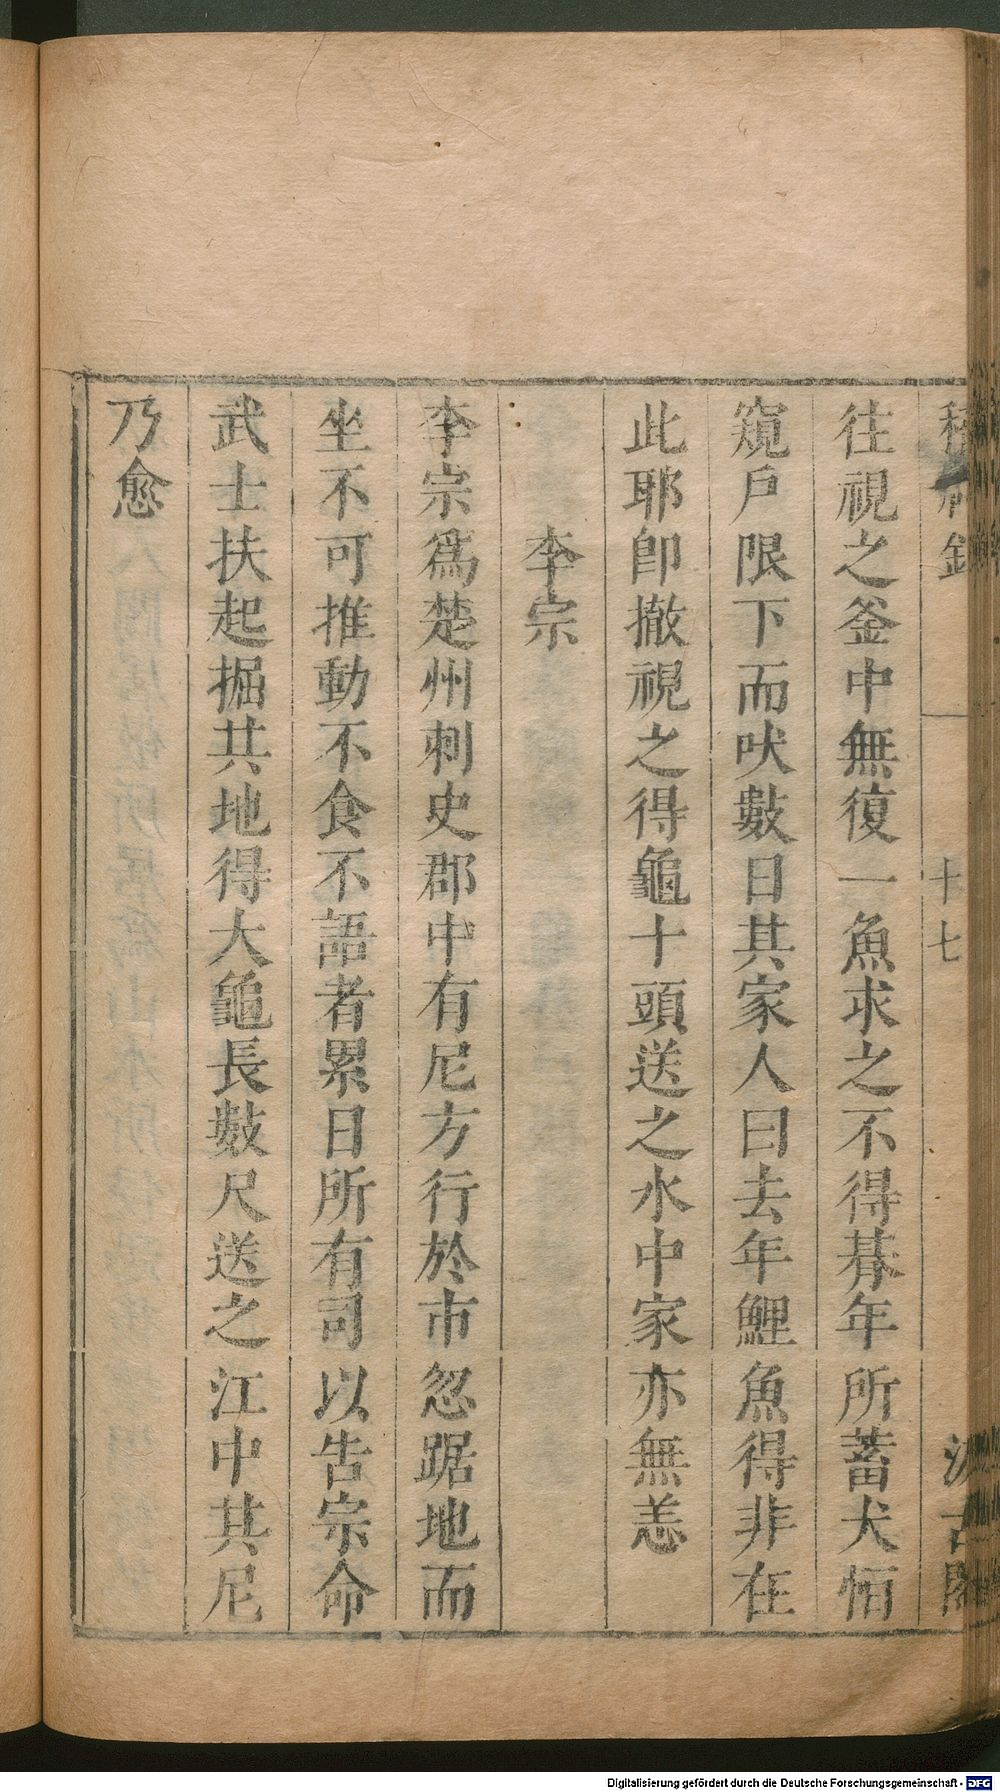 稽神錄
十七
汲古閣
往視之釜中無復一魚求之不得朞年所蓄犬恒
窺戶限下而吠數日其家人曰去年鯉魚得非在
此耶即撤視之得龜十頭送之水中家亦無恙
李宗
李宗爲楚州刺史郡中有尼方行於市忽踞地而
坐不可推動不食不語者累日所有司以告宗命
武士扶起掘其地得大龜長數尺送之江中其尼
乃愈
Digitalisierung gefördert durch die Deutsche Forschungsgemeinschaft - DFG